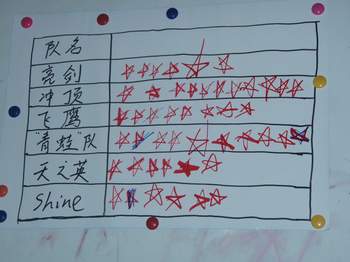 队名
亮剑
冲顶
飞鹰
"青蛙"队
天之英
Shine